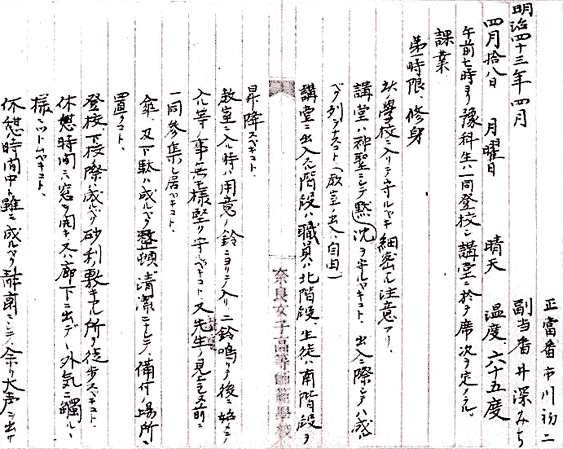 明治四十三年四月
正當番 市川初二
副当番 井深みち
四月拾八日 月曜日 晴天 温度 六十五度
午前七時ヨリ豫科生ハ一同登校シ講堂ニ於テ席次ヲ定メラル。
課業
第一時限 修身
此學校ニ入リテ守ルベキ細密ナル注意アリ、
講堂ハ神聖ニシテ黙沈ヲ守ルベキコト、出入ニ際シテハ成ル
ベク列ヲナスコト(教室ノ出入ハ自由)
講堂ニ出入スル階段ハ職員ハ北階段、生徒ハ南階段ヲ
昇降スベキコト、
教室ニ入ル時ハ用意ノ鈴ニヨリテ入リ二鈴鳴リテ後ニ始メテ
入ル等ノ事無キ様堅ク守ルベキコト又先生ノ見エヌ前ニ
一同参集シ居ベキコト、
傘、又下駄ハ成ルベク整頓、清潔ニシテ備付ノ場所ニ
置クコト、
登校下校ノ際ハ成ルベク砂利敷キタル所ヲ徒歩スベキコト、
休憩時間ニハ窓ヲ開キ又ハ廊下ニ出デ外気ニ觸ルル
様ニツトムベキコト、
休憩時間中ト雖モ成ルベク静肅ニシテ余リ大声ニ出サ
奈良女子高等師範學校